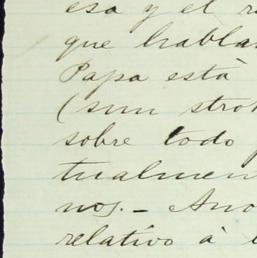 esa y el r
que habla
Papa está
(sun stro
sobre todo
tualmen
nos. - Ano
relativo á